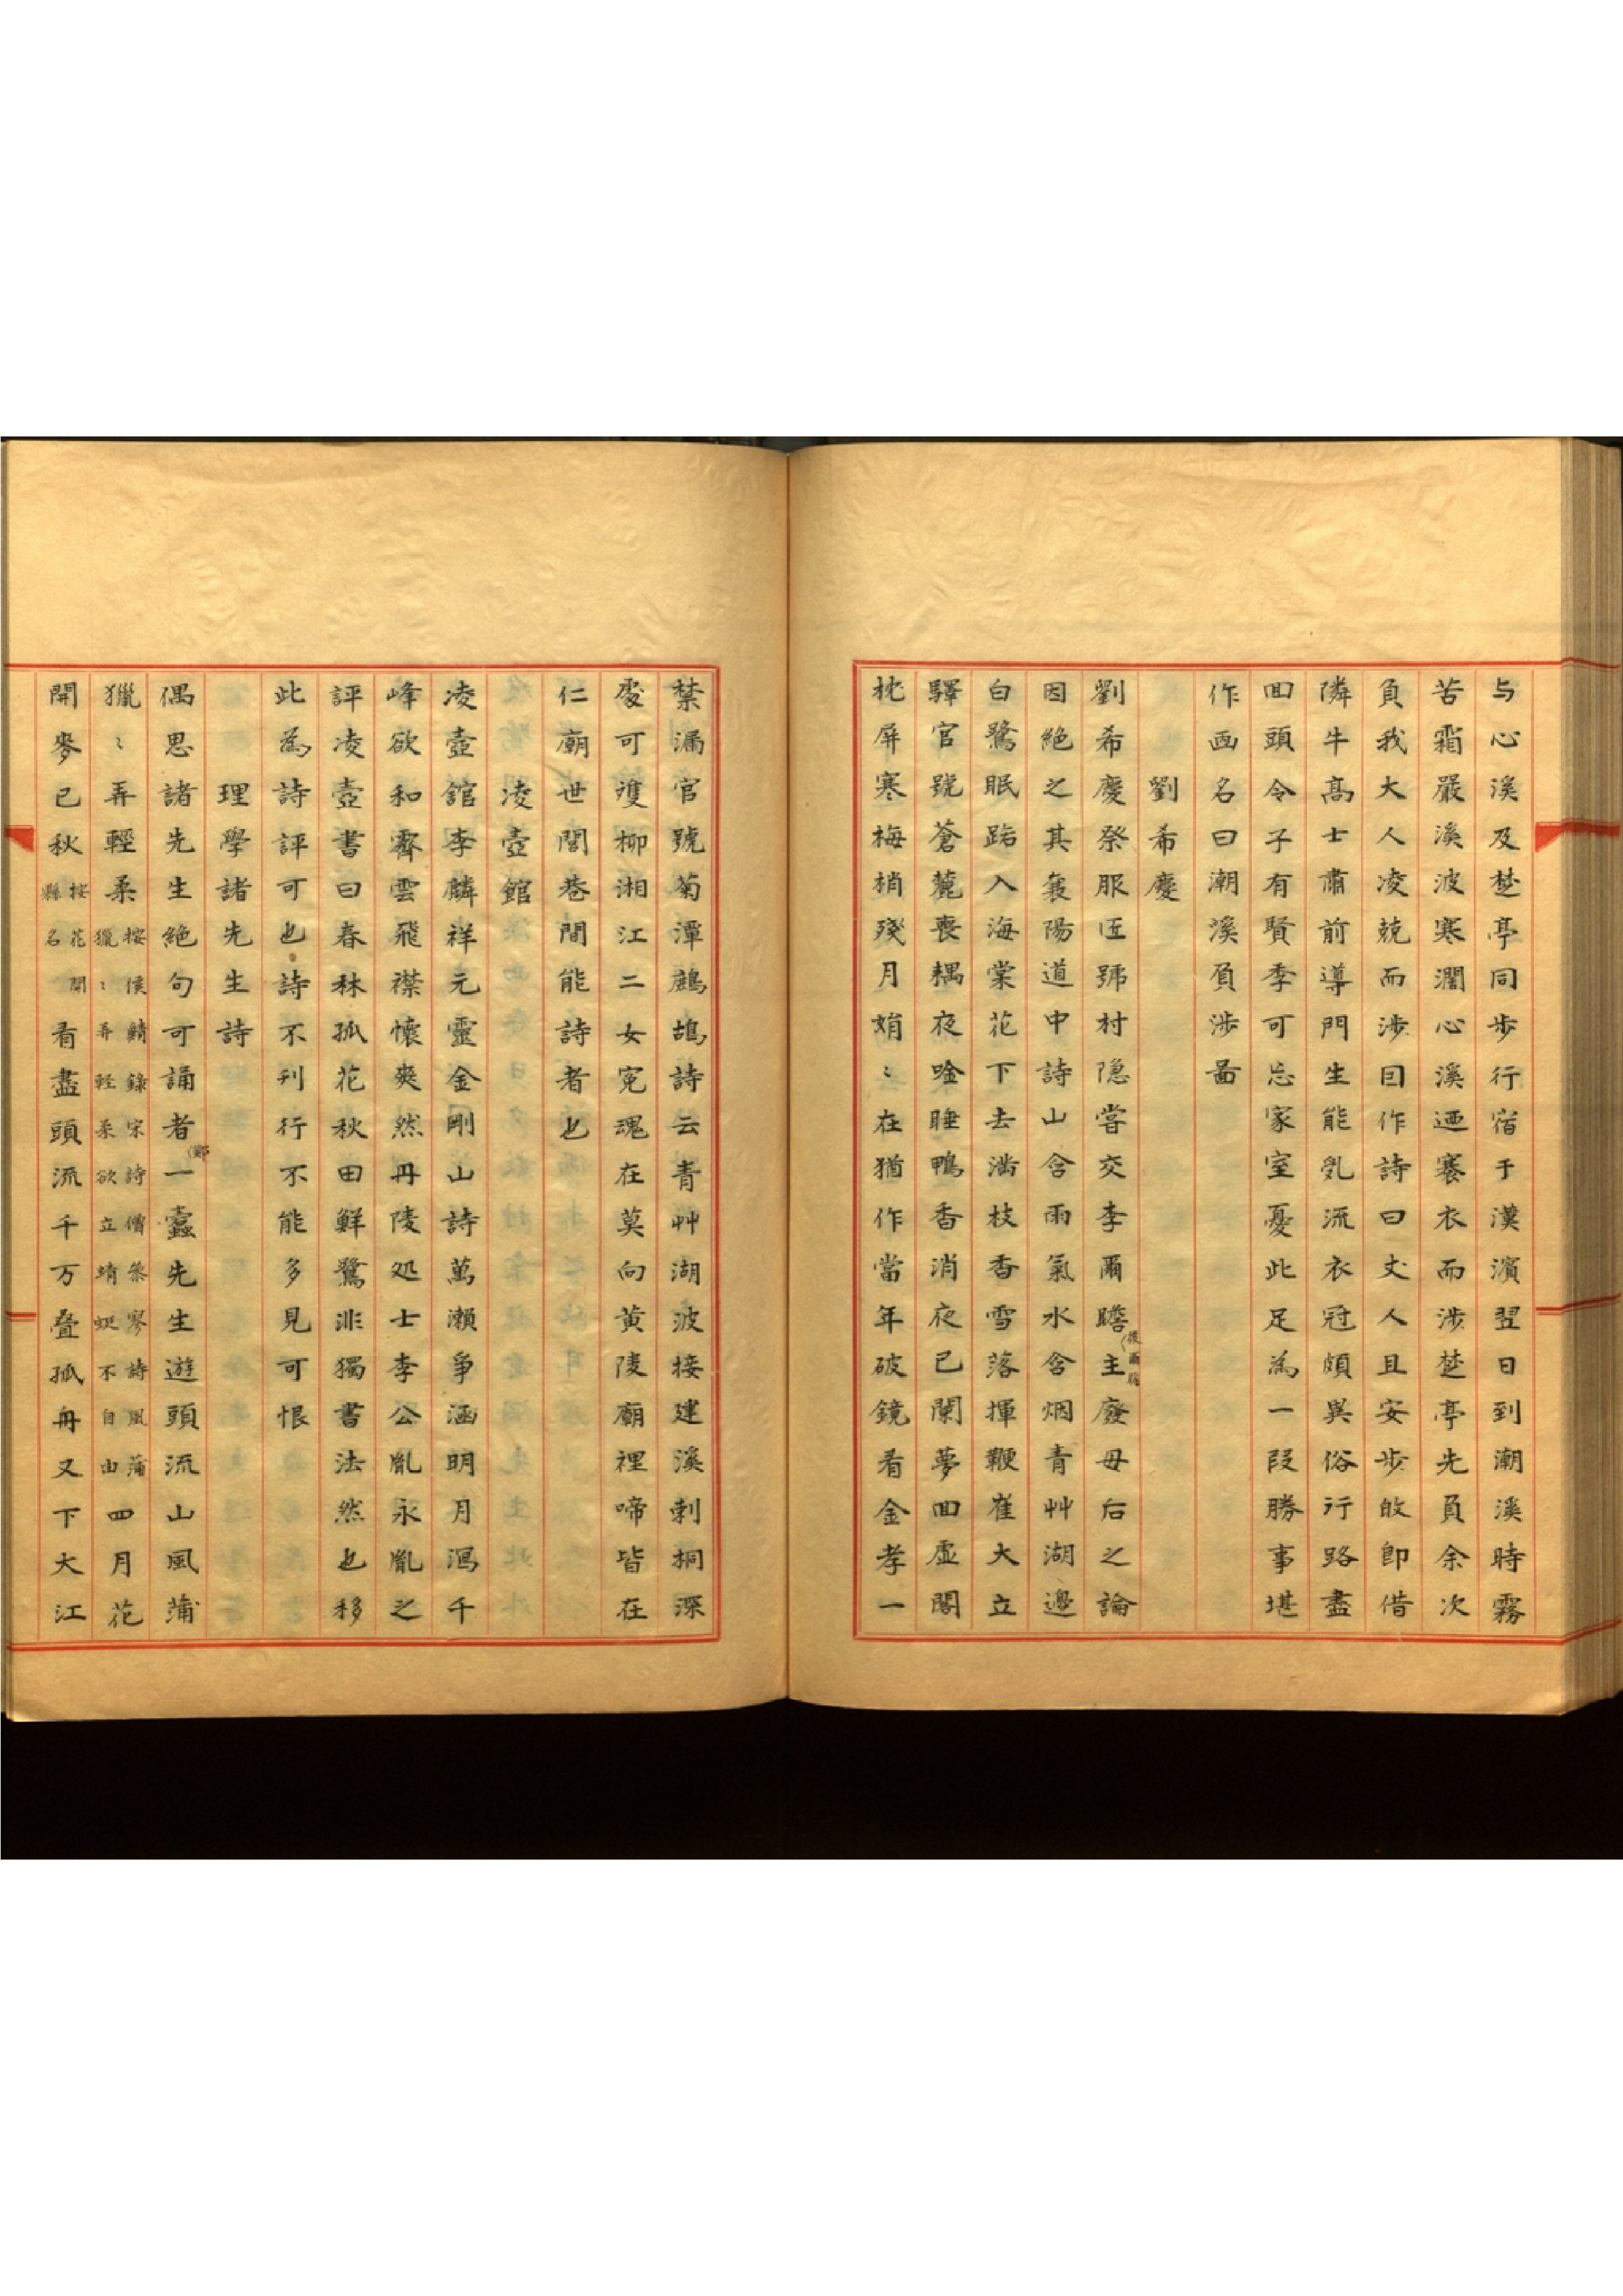 与心溪及楚亭同步行宿于漢濱翌日到潮溪時霧
苦霜嚴溪波寒濶心溪迺褰衣而涉楚亭先負余次
負我大人凌兢而涉因作詩曰丈人且安步敢卽借
隣牛高士肅前導門生能乱流衣冠頗異俗行路盡
回頭令子有賢季可忘家室憂此足為一段勝事堪
作画名曰潮溪負涉圖
劉希慶
劉希慶祭服匠號村隐嘗交李爾瞻主廢母后之論
後爾瞻
因絶之其襄陽道中詩山含雨氣水含烟青艸湖邊
白鷺眠路入海棠花下去滿枝香雪落揮鞭崔大立
驛官號蒼麓喪耦夜唫睡鴨香消夜已闌夢回虛閣
枕屏寒梅梢殘月娟〻在猶作當年破鏡看金孝一
禁漏官號菊潭鷓鴣詩云青艸湖波接建溪刺桐深
處可䨥柳湘江二女冤魂在莫向黃陵廟裡啼皆在
仁廟世閭巷間能詩者也
凌壺館
凌壺舘李麟祥元靈金剛山詩萬瀨爭涵明月瀉千
峰欲和霽雲飛襟懷爽然丹陵処士李公胤永胤之
評凌壺書曰春林孤花秋田鮮鷺非獨書法然也移
此為詩評可也詩不刊行不能多見可恨
理學諸先生詩
偶思諸先生絶句可誦者一蠹先生遊頭流山風蒲
鄭
獵〻弄輕柔按侯鯖錄宋詩僧叅寥詩風蒲獵〻弄輕柔欲立蜻蜓不自由四月花
開麥已秋按花開縣名看盡頭流千万叠孤舟又下大江